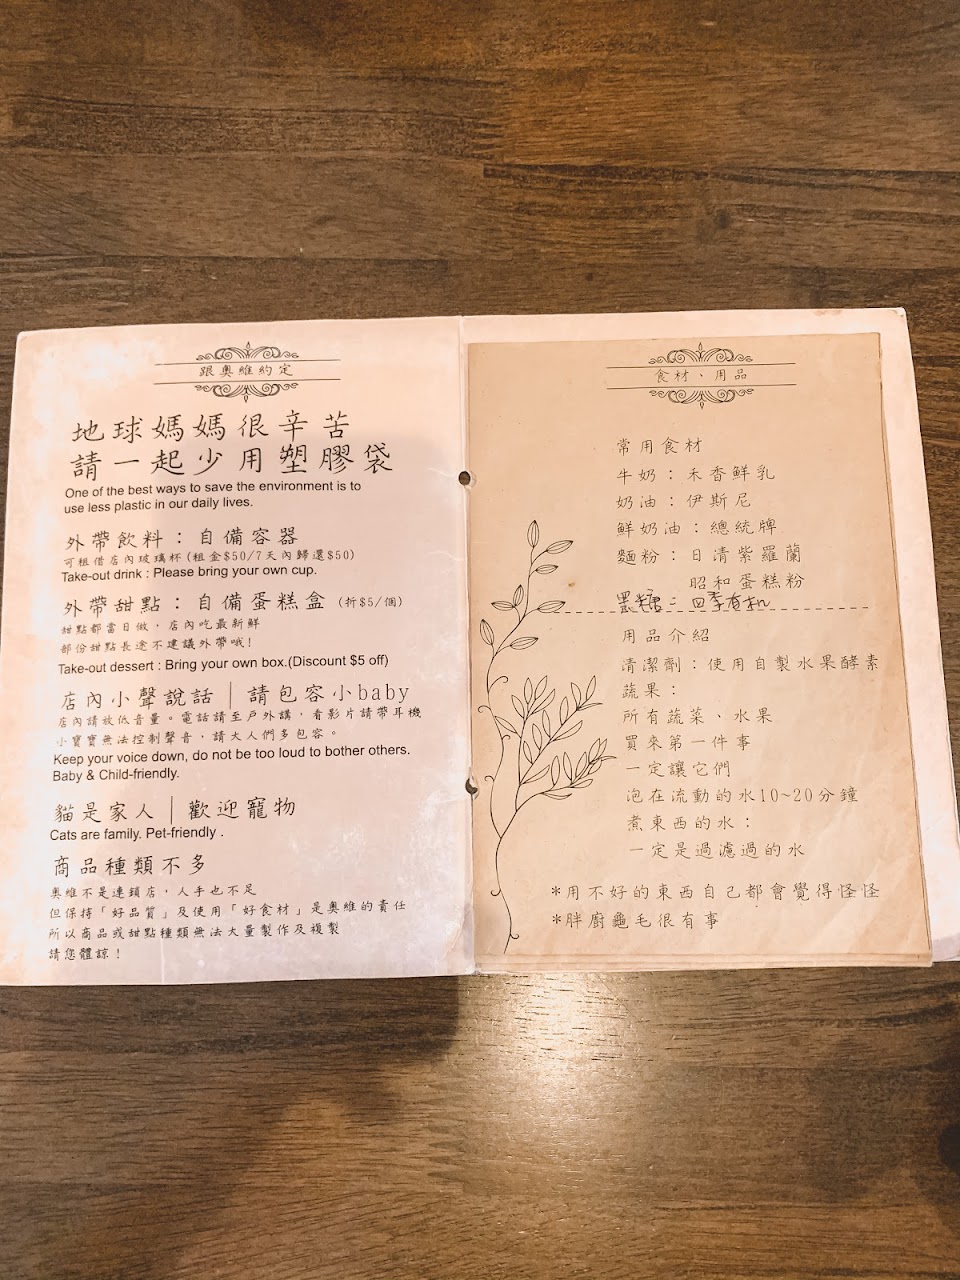 跟奧維約定
地球媽媽很辛苦
請一起少用塑膠袋
One of the best ways to save the environment is to
use less plastic in our daily lives.
外帶飲料：自備容器
可租借店內玻璃杯(租金$50/7天內歸還$50)
Take-out drink : Please bring your own cup.
外帶甜點：自備蛋糕盒 (折$5/個)
甜點都當日做，店內吃最新鮮
部份甜點長途不建議外帶哦!
Take-out dessert : Bring your own box.(Discount $5 off)
店內小聲說話│請包容小baby
店內請放低音量。電話請至戶外講，看影片請帶耳機
小寶寶無法控制聲音，請大人們多包容。
Keep your voice down, do not be too loud to bother others.
Baby & Child-friendly.
貓是家人│歡迎寵物
Cats are family. Pet-friendly .
商品種類不多
奧維不是連鎖店，人手也不足
但保持「好品質」及使用「好食材」是奧維的責任
所以商品或甜點種類無法大量製作及複製
請您體諒！
食材、用品
常用食材
牛奶：禾香鮮乳
奶油：伊斯尼
鮮奶油：總統牌
麵粉：日清紫羅蘭
昭和蛋糕粉
黑糖：四季有机
用品介紹
清潔劑：使用自製水果酵素
蔬果：
所有蔬菜、水果
買來第一件事
一定讓它們
泡在流動的水10~20分鐘
煮東西的水：
一定是過濾過的水
*用不好的東西自己都會覺得怪怪
*胖廚龜毛很有事